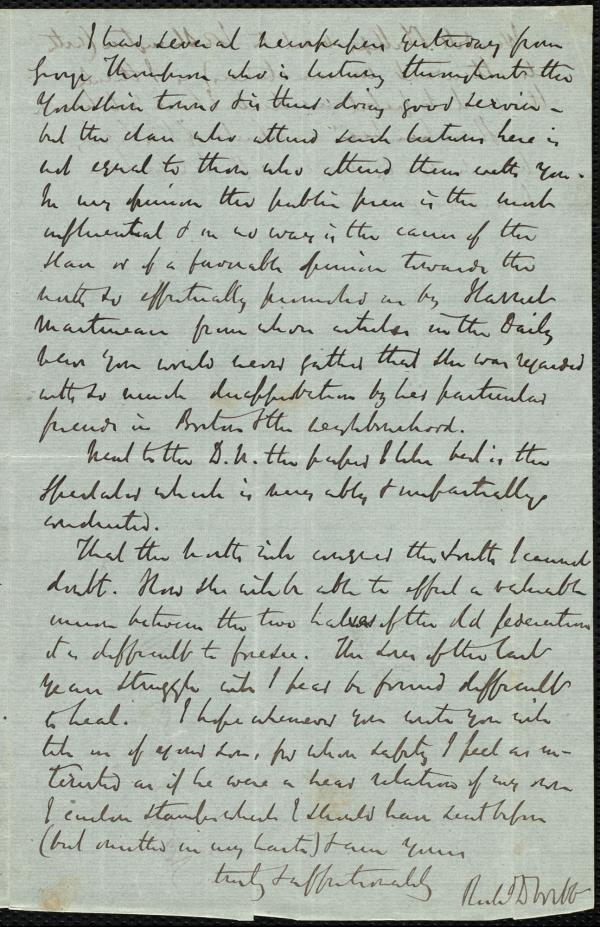 I had several newspapers yesterday from
George Thompson who is lecturing throughout the
Yorkshire towns & is thus doing good service -
but the class who attend such lectures here is
not equal to those who attend them with you.
In my opinion the public press is the most
influential & in no way is the cause of the
slave or of a favorable opinion towards the
north so effectually promoted as by Harriet
Martineau from whose articles in the Daily
News you would never gather that she was regarded
with so much disapprobation by her particular
friends in Boston & the neighbourhood.
Next to the D. N. the paper I like best is the
Spectator which is very ably & impartially
conducted.
That the North will conquer the South I cannot
doubt. How she will be able to effect a valuable
union between the two halves of the old federation
it is difficult to foresee. The sores of the last
years struggle will I fear be found difficult
to heal. I hope whenever you write you will
tell us of your son, for whose safety I feel as in-
terested as if he were a near relation of my own
I enclose stamps which I should have sent before
(but omitted in my haste) & am yours
truly & affectionately
Richd D Webb